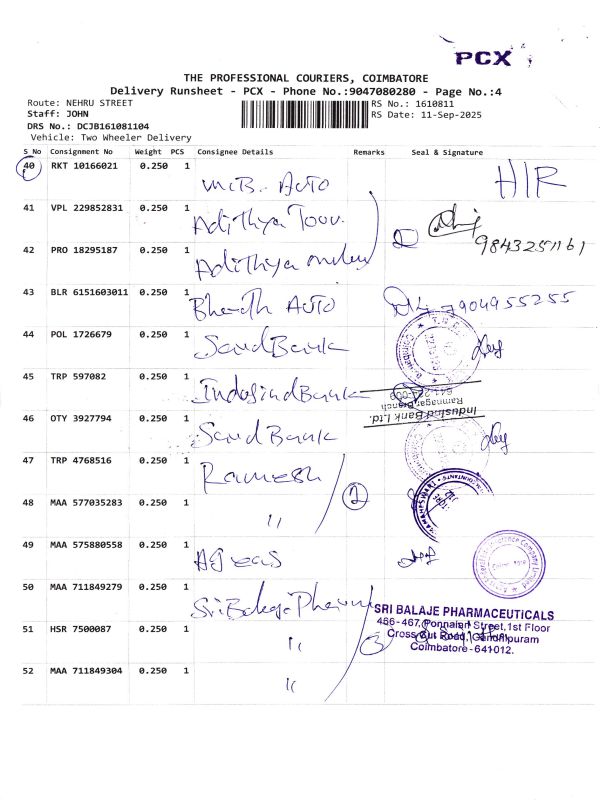 PCX
THE PROFESSIONAL COURIERS, COIMBATORE
Delivery Runsheet - PCX - Phone No.:9047080280 - Page No.:4
Route: NEHRU STREET
RS No.: 1610811
Staff: JOHN
RS Date: 11-Sep-2025
DRS No.: DCJB161081104
Vehicle: Two Wheeler Delivery
S No Consignment No Weight PCS Consignee Details Remarks Seal & Signature
40 RKT 10166021 0.250 1 Auto HIR
41 VPL 229852831 0.250 1 Adithya
2 9843251161
42 PRO 18295187 0.250 1 Adithya
43 BLR 6151603011 0.250 1 Auto 7904955255
44 POL 1726679 0.250 1 Bank
45 TRP 597082 0.250 1 IndusindBank
Indusind Bank Ltd.
Ramnagar Branch
46 OTY 3927794 0.250 1 Bank
47 TRP 4768516 0.250 1 Ramesh
2
48 MAA 577035283 0.250 1 "
49 MAA 575880558 0.250 1
50 MAA 711849279 0.250 1 Sri Balaje
SRI BALAJE PHARMACEUTICALS
466-467, Ponnaiah Street, 1st Floor
Cross Cut Road, Gandhipuram
Coimbatore - 641 012.
51 HSR 7500087 0.250 1 " 3
52 MAA 711849304 0.250 1 "